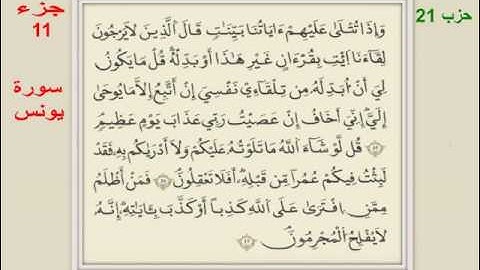 جزء
11
سورة
يونس
حزب 21
وَإِذَا تُتْلَىٰ عَلَيْهِمْ ءَايَاتُنَا بَيِّنَٰتٍ قَالَ ٱلَّذِينَ لَا يَرْجُونَ
لِقَآءَنَا ٱئْتِ بِقُرْءَانٍ غَيْرِ هَٰذَآ أَوْ بَدِّلْهُ قُلْ مَا يَكُونُ
لِيَ أَنْ أُبَدِّلَهُۥ مِن تِلْقَآءِى نَفْسِيَ إِنْ أَتَّبِعُ إِلَّا مَا يُوحَىٰٓ
إِلَيَّ إِنِّيَ أَخَافُ إِنْ عَصَيْتُ رَبِّي عَذَابَ يَوْمٍ عَظِيمٍ
قُل لَّوْ شَآءَ ٱللَّهُ مَا تَلَوْتُهُۥ عَلَيْكُمْ وَلَآ أَدْرَىٰكُم بِهِۦ فَقَدْ
لَبِثْتُ فِيكُمْ عُمُرًا مِّن قَبْلِهِۦٓ أَفَلَا تَعْقِلُونَ فَمَنْ أَظْلَمُ
مِمَّنِ ٱفْتَرَىٰ عَلَى ٱللَّهِ كَذِبًا أَوْ كَذَّبَ بِـَٔايَٰتِهِۦٓ إِنَّهُۥ
لَا يُفْلِحُ ٱلْمُجْرِمُونَ